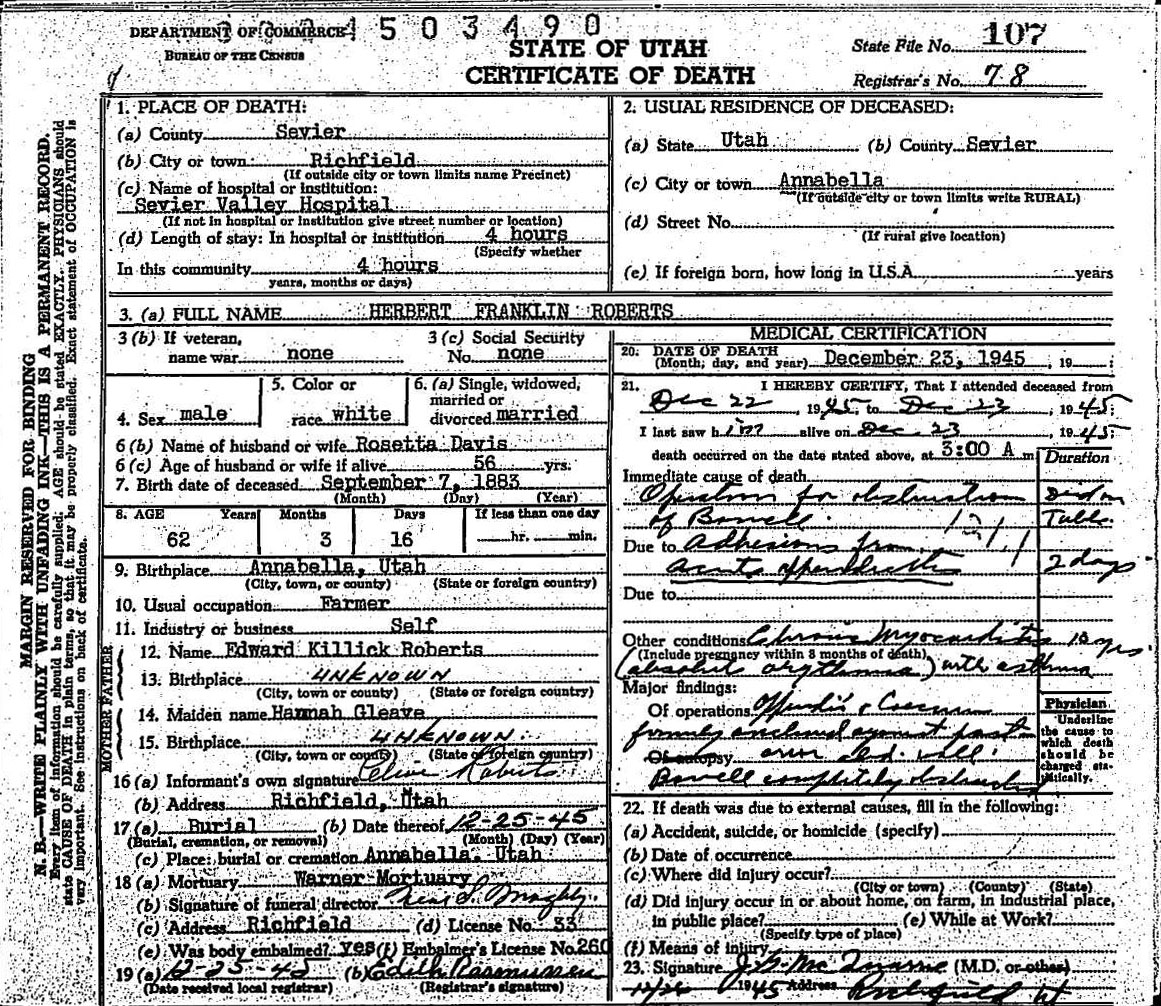 4503490
DEPARTMENT OF COMMERCE
BUREAU OF THE CENSUS
STATE OF UTAH
CERTIFICATE OF DEATH
State File No. 107
Registrar's No. 78
MARGIN RESERVED FOR BINDING
N. B.—WRITE PLAINLY WITH UNFADING INK—THIS IS A PERMANENT RECORD.
Every item of information should be carefully supplied. AGE should be stated EXACTLY. PHYSICIANS should
state CAUSE OF DEATH in plain terms, so that it may be properly classified. Exact statement of OCCUPATION is
very important. See instructions on back of certificate.
1. PLACE OF DEATH:
(a) County Sevier
(b) City or town: Richfield
(If outside city or town limits name Precinct)
(c) Name of hospital or institution:
Sevier Valley Hospital
(If not in hospital or institution give street number or location)
(d) Length of stay: In hospital or institution 4 hours
(Specify whether
In this community 4 hours
years, months or days)
2. USUAL RESIDENCE OF DECEASED:
(a) State Utah (b) County Sevier
(c) City or town Annabella
(If outside city or town limits write RURAL)
(d) Street No.
(If rural give location)
(e) If foreign born, how long in U.S.A. years
3. (a) FULL NAME HERBERT FRANKLIN ROBERTS
3 (b) If veteran,
name war none
3 (c) Social Security
No. none
4. Sex male
5. Color or
race white
6. (a) Single, widowed,
married or
divorced married
6 (b) Name of husband or wife Rosetta Davis
6 (c) Age of husband or wife if alive 56 yrs.
7. Birth date of deceased September 7, 1883
(Month) (Day) (Year)
8. AGE Years Months Days If less than one day
62 3 16 hr. min.
9. Birthplace Annabella, Utah
(City, town, or county) (State or foreign country)
10. Usual occupation Farmer
11. Industry or business Self
FATHER
12. Name Edward Killick Roberts
13. Birthplace UNKNOWN
(City, town or county) (State or foreign country)
MOTHER
14. Maiden name Hannah Gleave
15. Birthplace UNKNOWN
(City, town or county) (State or foreign country)
16 (a) Informant's own signature Roberts
(b) Address Richfield, Utah
17 (a) Burial (b) Date thereof 12-25-45
(Burial, cremation, or removal) (Month) (Day) (Year)
(c) Place: burial or cremation Annabella, Utah
18 (a) Mortuary Warner Mortuary
(b) Signature of funeral director
(c) Address Richfield (d) License No. 33
(e) Was body embalmed? yes (f) Embalmer's License No. 260
19 (a) 12-25-45 (b) Edith Rasmussen
(Date received local registrar) (Registrar's signature)
MEDICAL CERTIFICATION
20. DATE OF DEATH
(Month, day, and year) December 23, 1945, 19
21. I HEREBY CERTIFY, That I attended deceased from
Dec 22, 1945, to Dec 23, 1945;
I last saw him alive on Dec. 23, 1945;
death occurred on the date stated above, at 3:00 A m
Duration
Immediate cause of death
Operation for obstruction Died on
of Bowell. Table
Due to Adhesions from
acute appendicitis 2 days
Due to
Other conditions Chronic Myocarditis 10 yrs.
(Include pregnancy within 3 months of death)
(absolut arythmia) with asthma
Major findings:
Of operations Appendix & Coecum
firmly anchored against
Of autopsy abd. wall.
Bowell completely obstructed
Physician
Underline
the cause to
which death
should be
charged sta-
tistically.
22. If death was due to external causes, fill in the following:
(a) Accident, suicide, or homicide (specify)
(b) Date of occurrence
(c) Where did injury occur?
(City or town) (County) (State)
(d) Did injury occur in or about home, on farm, in industrial place,
in public place? (e) While at Work?
(Specify type of place)
(f) Means of injury
23. Signature (M.D. or other)
12/26 1945 Address Richfield Ut